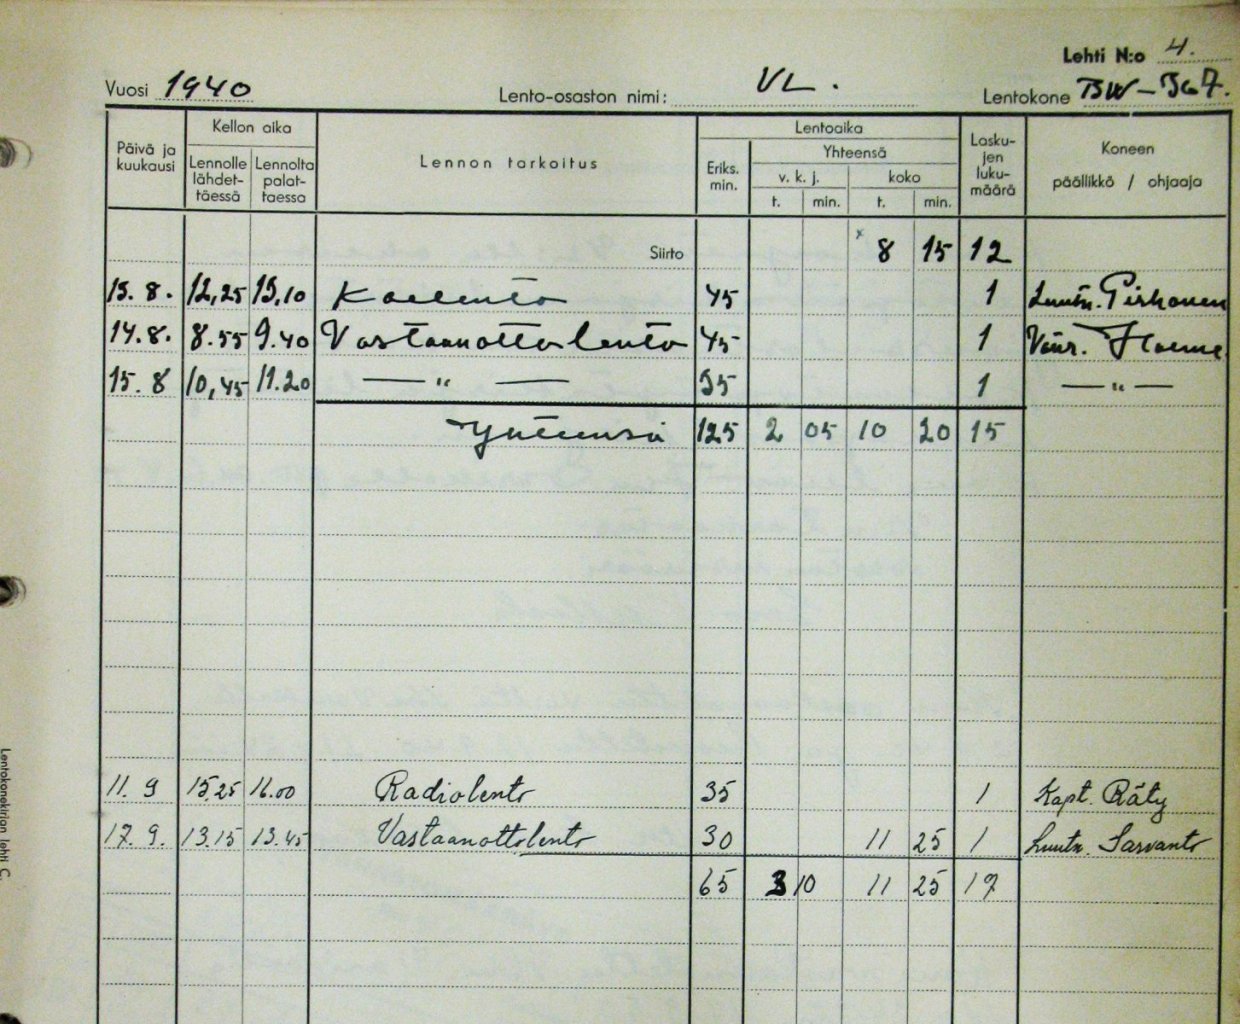 Lehti N:o 4.
Vuosi 1940 Lento-osaston nimi: VL. Lentokone BW-367.
Päivä ja kuukausi Kellon aika Lennolle lähdet-täessä Lennolta palat-taessa Lennon tarkoitus Eriks. min. Lentoaika Yhteensä v. k. j. t. min. koko t. min. Lasku-jen luku-määrä Koneen päällikkö / ohjaaja
Siirto x 8 15 12
13. 8. 12,25 13,10 Koelento 45 1 Luutn. Pirhonen
14. 8. 8.55 9.40 Vastaanottolento 45 1 Vänr.
15. 8 10,45 11.20 — " — 35 1 — " —
Yhteensä 125 2 05 10 20 15
11. 9 15.25 16.00 Radiolento 35 1 Kapt. Räty
17. 9. 13.15 13.45 Vastaanottolento 30 11 25 1 Luutn. Sarvanto
65 3 10 11 25 17
Lentokonekirjan lehti C.